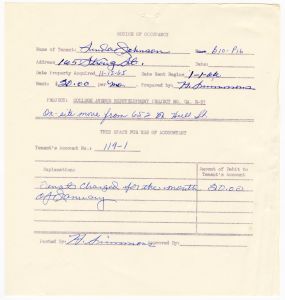 NOTICE OF OCCUPANCY
Name of Tenant: Johnson No. 610-P16
Address 145 Strong St. Date:
Date Property Acquired 11-12-65 Date Rent Begins 1-1-66
Rent: $20.00 per mo Prepared by: H. Simmons
PROJECT: COLLEGE AVENUE REDEVELOPMENT (PROJECT NO. GA. R-5)
On-site move from 652 Hull St
THIS SPACE FOR USE OF ACCOUNTANT
Tenant's Account No.: 119-1
Explanations Amount of Debit to
Tenant's Account
Rents charged for the month 20.00
of January
Posted By: H. Simmons Approved By: